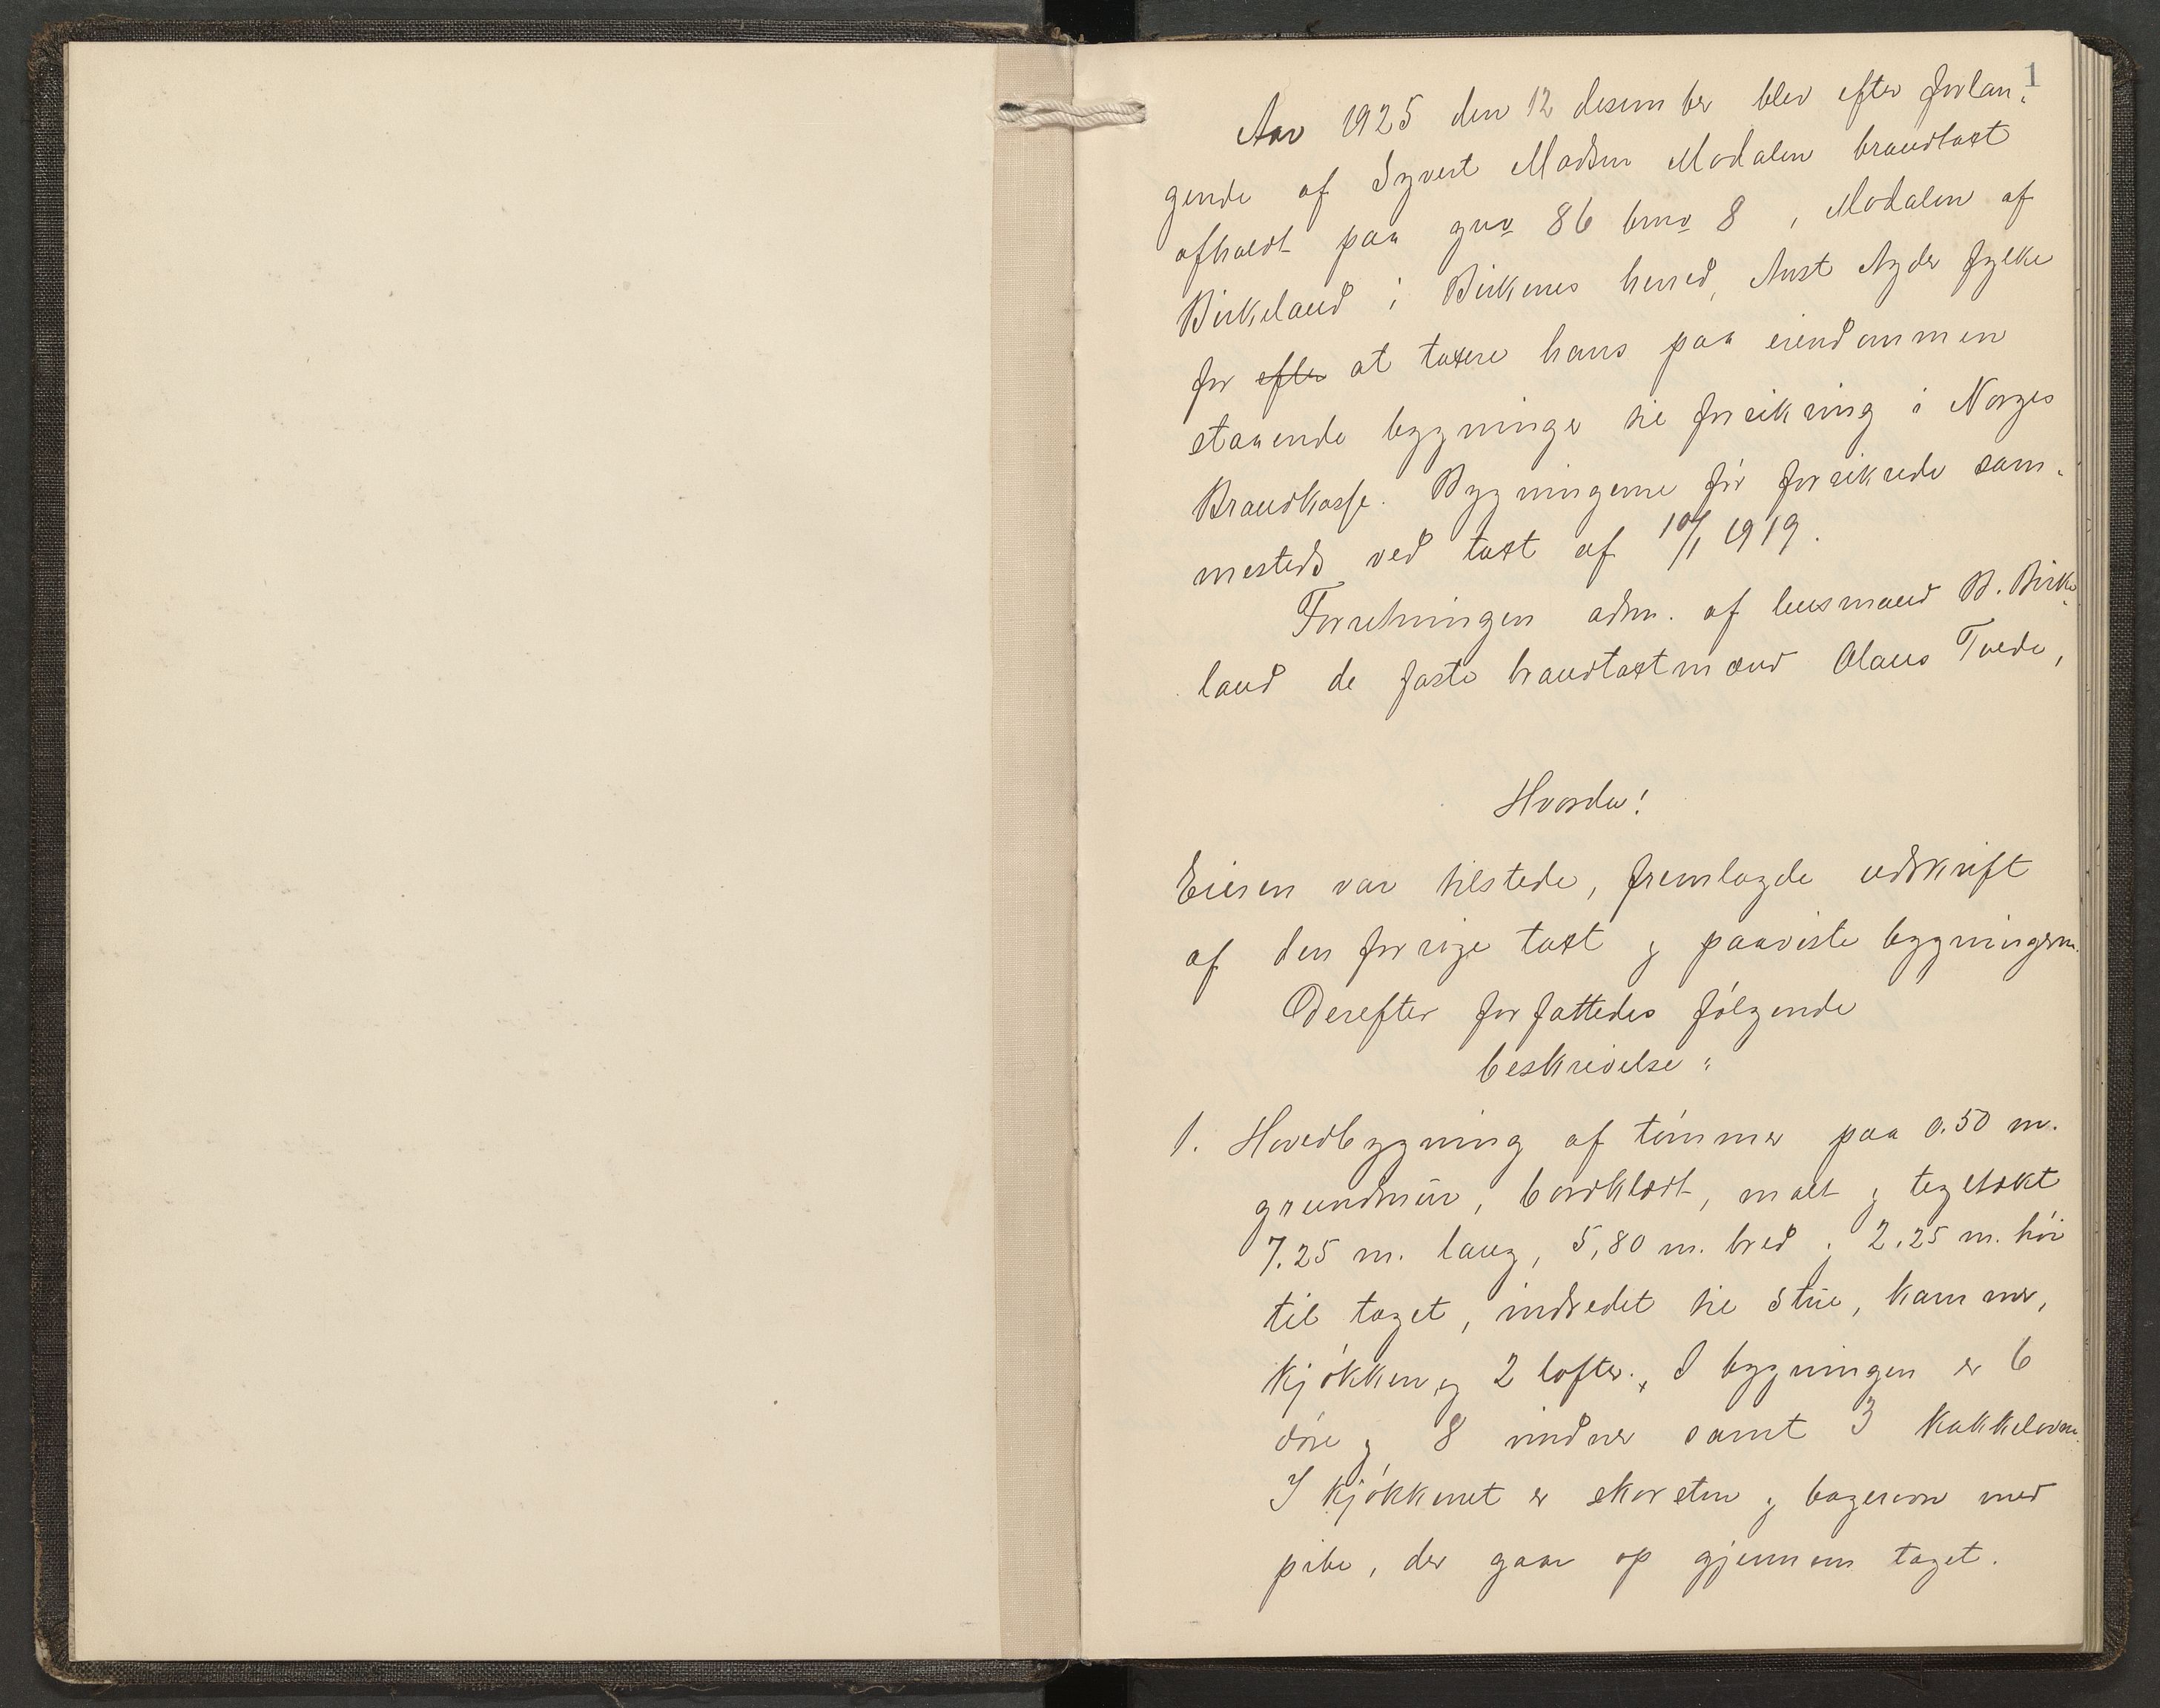 1
Aar 1925 den 12 desember blev efter forlan-
gende af Syvert Madsen Modalen brandtaxt
afholdt paa gno 86 bno 8, Modalen af
Birkeland i Birkenes herred, Aust Agder fylke
for efter at taxere hans paa eiendommen
staaende bygninger til forsikring i Norges
Brandkasse. Bygningerne før forsikrede sam-
mesteds ved taxt af 10/1 1919.
Forretningen adm. af lensmand B. Birke-
land de faste brandtaxtmænd Olaus Tvede,
Hvorda!
Eieren var tilstede, fremlagde udskrift
af den forrige taxt og paaviste bygningern.
Derefter forfattedes følgende
beskrivelse:
1. Hovedbygning af tømmer paa 0.50 m.
grundmur, bordklædt, malt og tegltækt
7.25 m. lang, 5,80 m. bred og 2.25 m. høi
til taget, indredet til stue, kammer,
kjøkken og 2 lofter. I bygningen er 6
døre og 8 vinduer samt 3 kakkelovne.
I kjøkkenet er skorsten og bagerovn med
pibe, der gaar op gjennem taget.